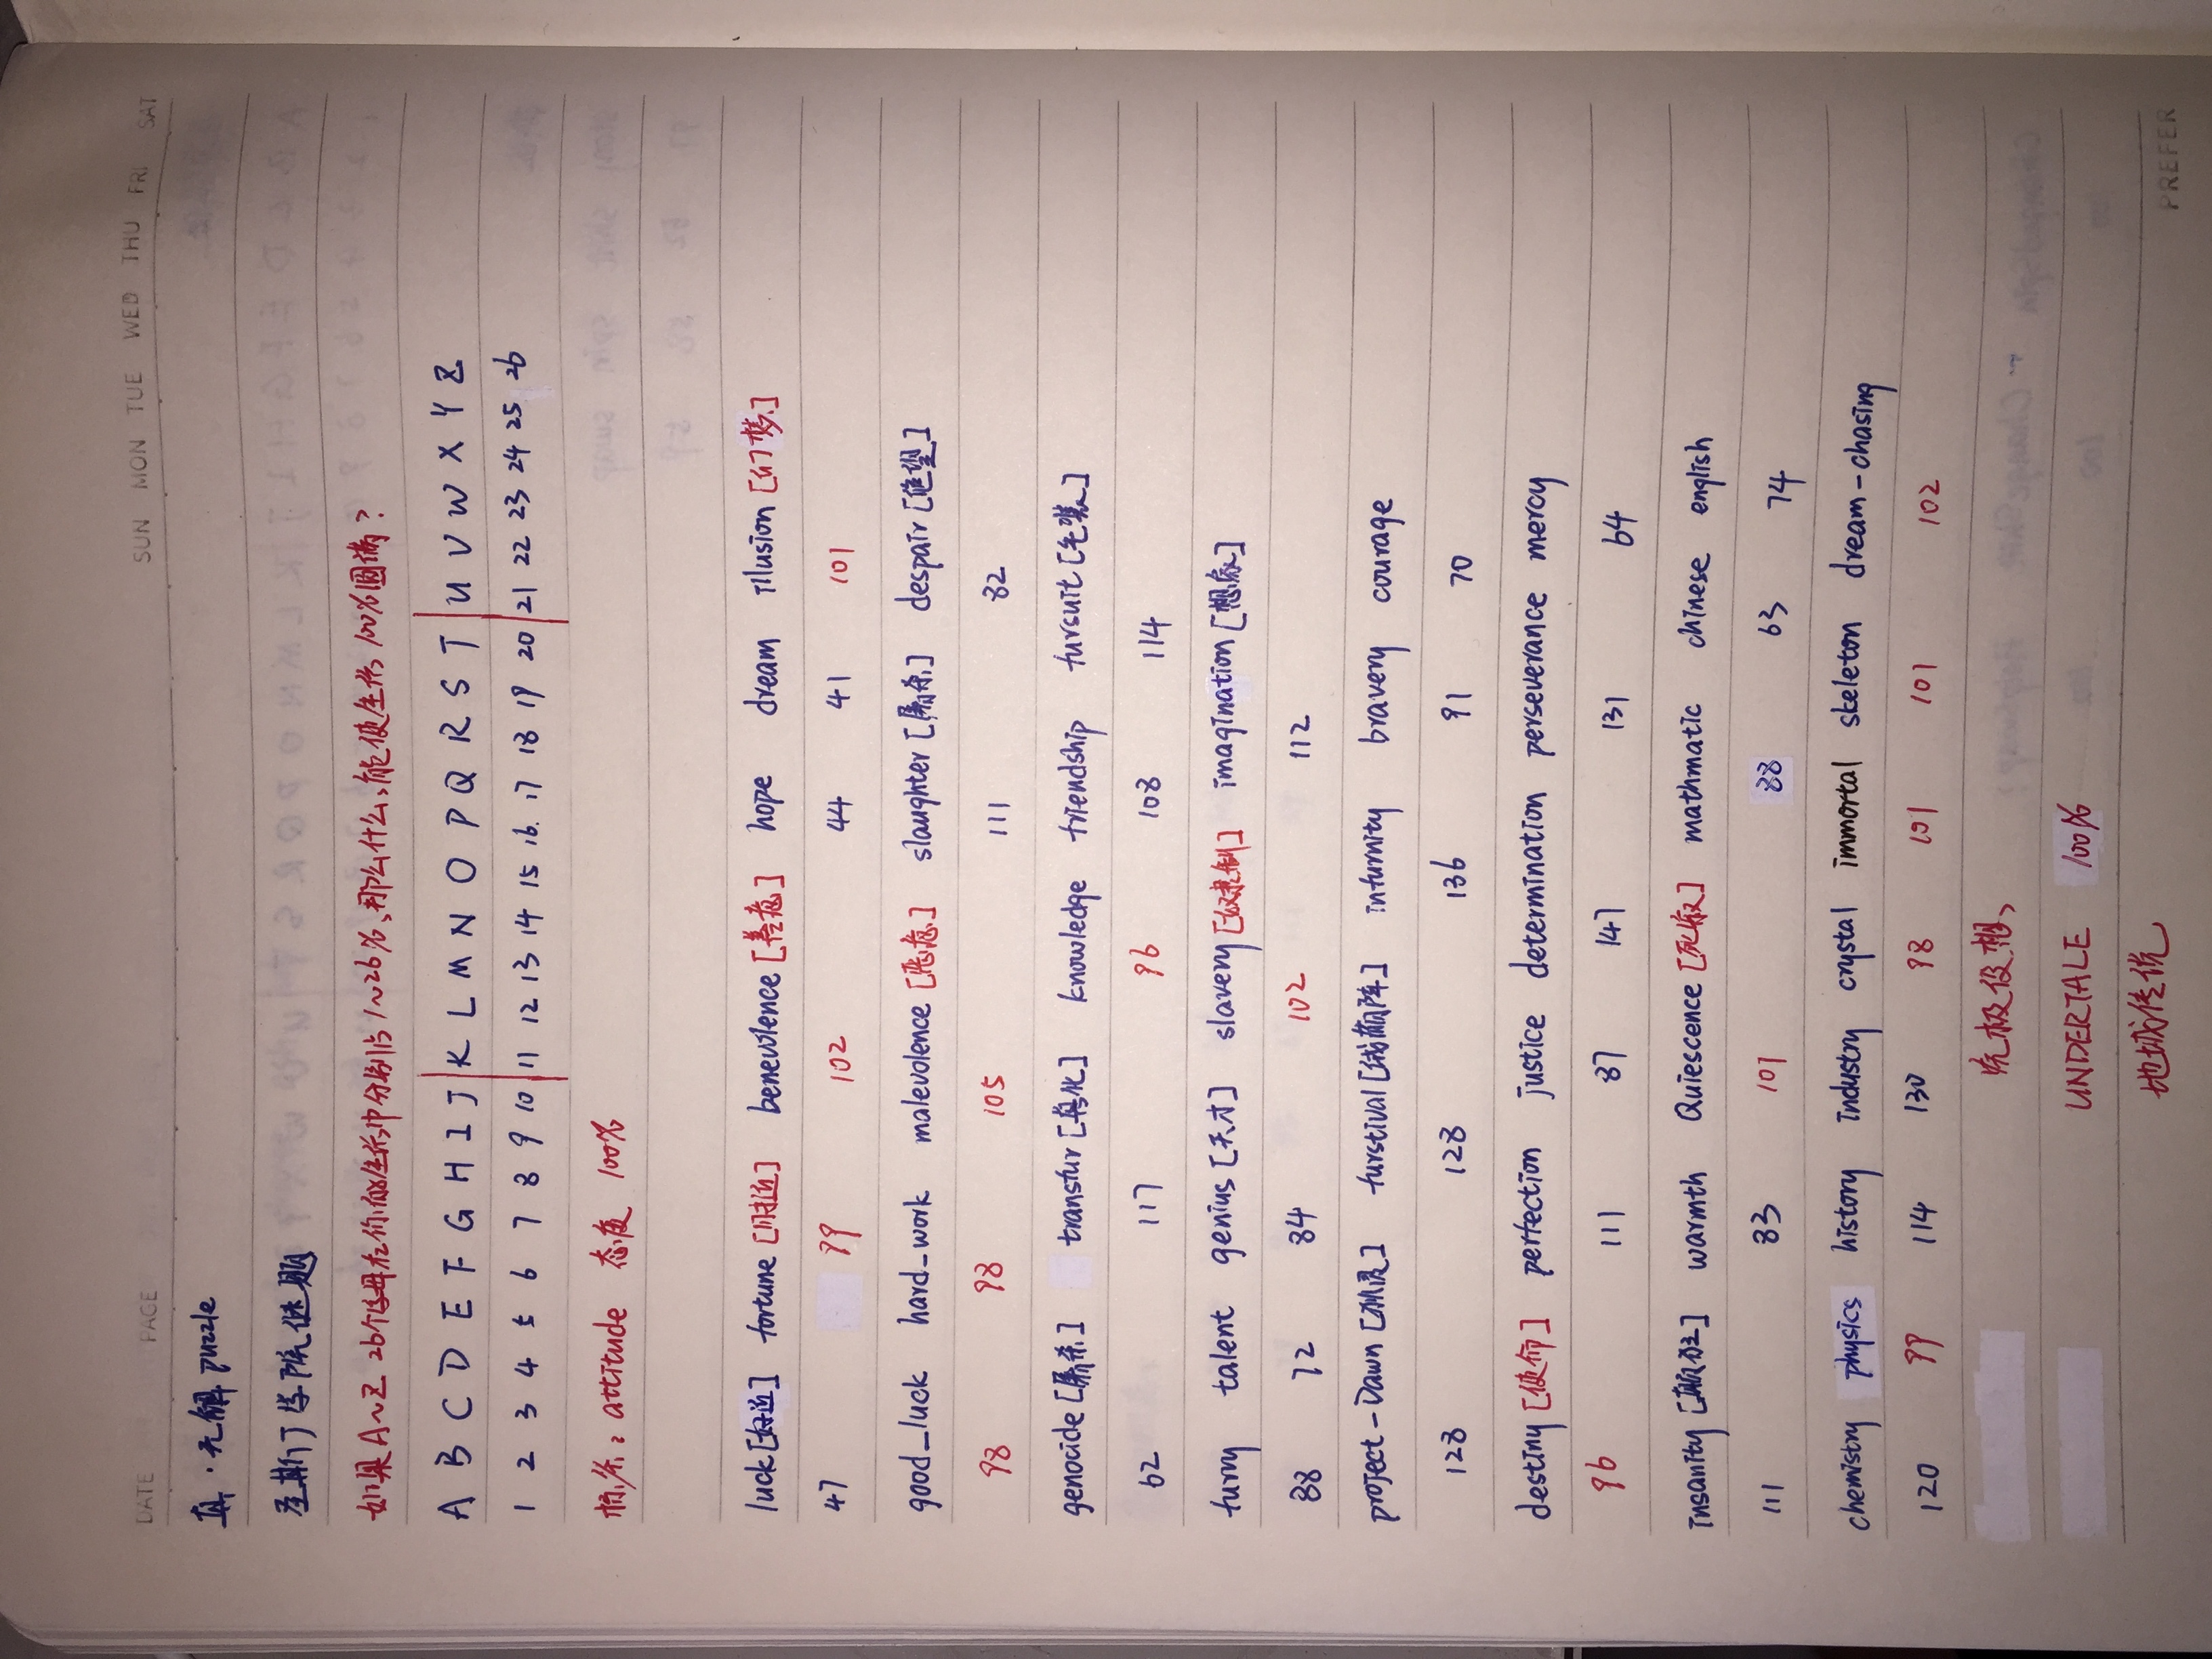 DATE PAGE SUN MON TUE WED THU FRI SAT
真·无解 puzzle
圣斯丁学院谜题
如果A~Z 26个字母在你的生活中分别占1~26%,那么什么,能使生活100%圆满?
A B C D E F G H I J K L M N O P Q R S T U V W X Y Z
1 2 3 4 5 6 7 8 9 10 11 12 13 14 15 16. 17 18 19 20 21 22 23 24 25 26
标答: attitude 态度 100%
luck[好运] fortune[时运] benevolence[善意] hope dream illusion[幻梦]
47 99 102 44 41 101
good_luck hard_work malevolence[恶意] slaughter[屠杀] despair[绝望]
98 98 105 111 82
genocide[屠杀] transfur[兽化] knowledge friendship fursuit[毛装]
62 117 96 108 114
furry talent genius[天才] slavery[奴隶制] imagination[想象]
88 72 84 102 112
project-Dawn furstival infurnity bravery courage
128 128 136 91 70
destiny[使命] perfection justice determination perseverance mercy
96 111 87 147 131 64
insanity[癫狂] warmth Quiescence[死寂] mathmatic chinese english
111 83 101 88 63 74
chemistry physics history industry crystal immortal skeleton dream-chasing
120 99 114 130 98 101 101 102
究极设想、
UNDERTALE 100%
地域传说
PREFER